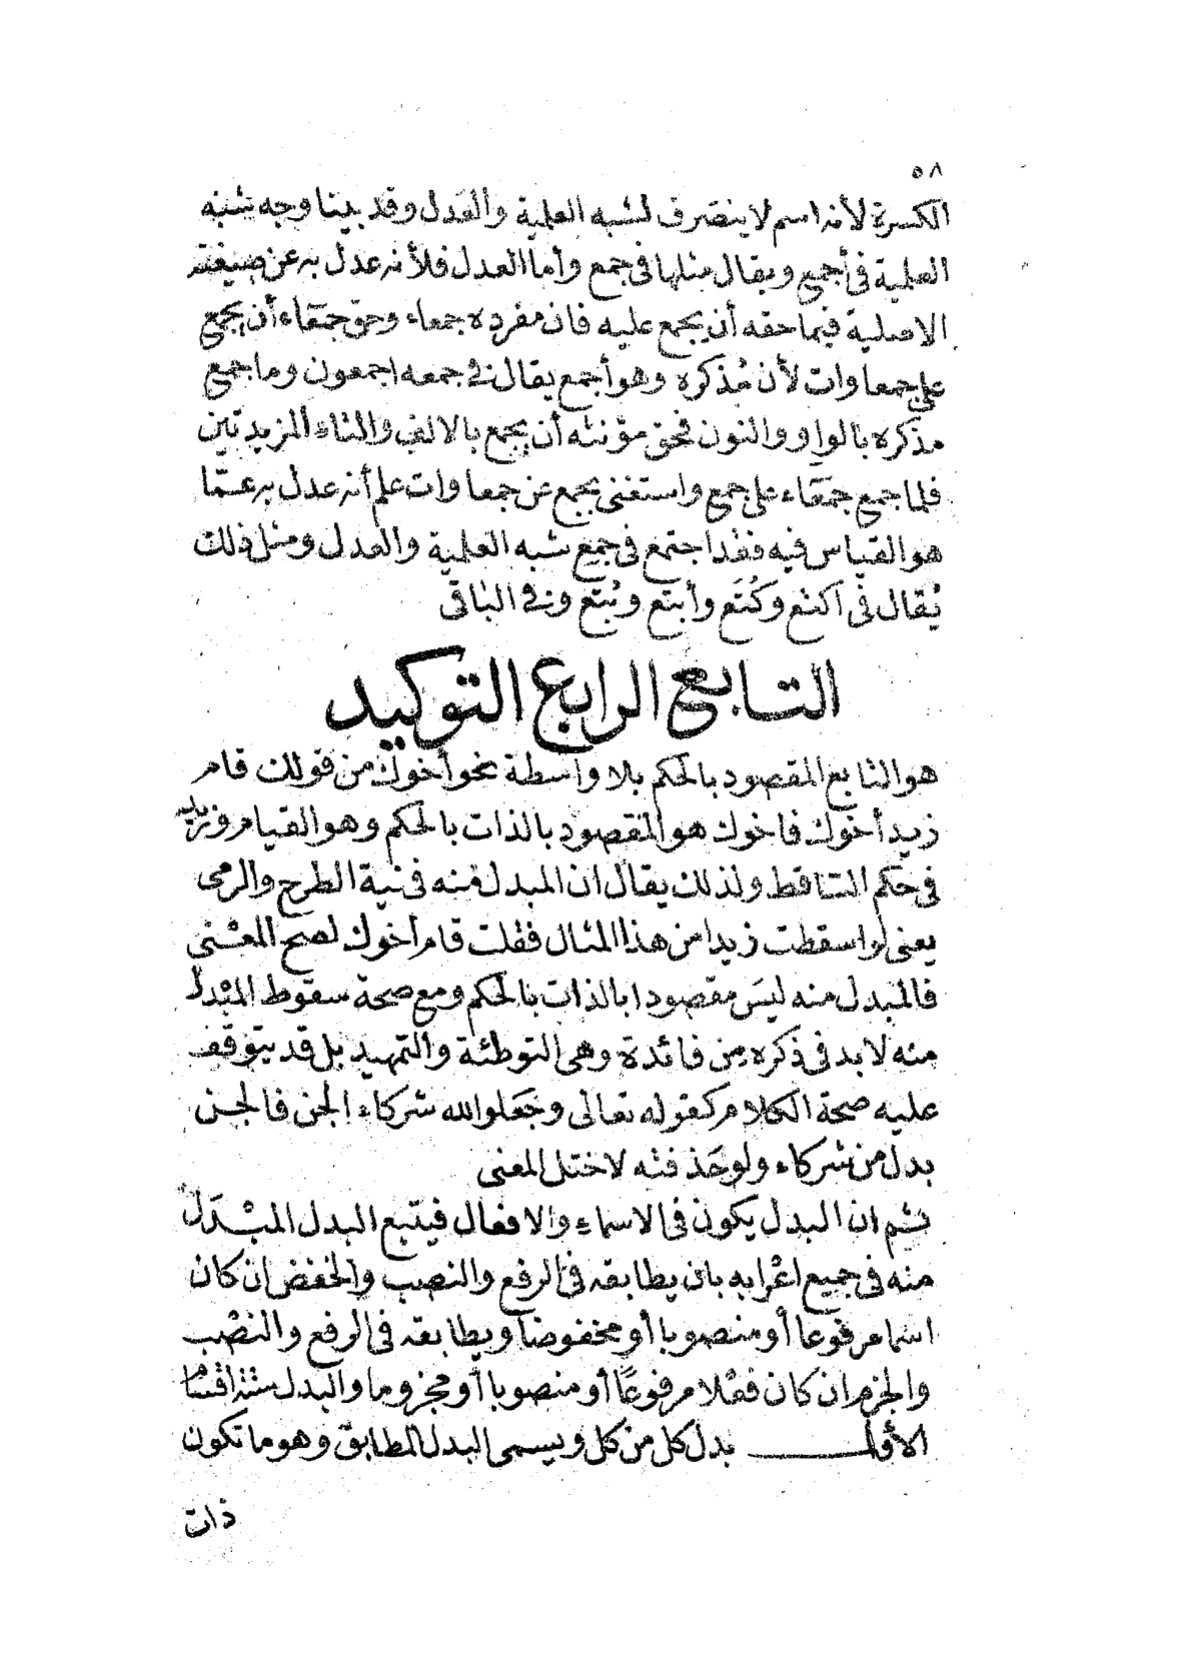 ٥٨
الكسرة لأنه اسم لا ينصرف لشبه العلمية والعدل وقد بينا وجه شبه
العلمية في أجمع ويقال مثلها في جمع وأما العدل فلأنه عدل به عن صيغته
الاصلية فيما حقه أن يجمع عليه فان مفرده جمعاء وحق جمعاء أن يجمع
على جمعاوات لأن مُذكره وهو أجمع يقال في جمعه اجمعون وما جمع
مذكره بالواو والنون فحق مؤنثه أن يجمع بالالف والتاء المزيدتين
فلما جمع جمعَاء على جمع واستغنى بجمع عن جمعاوات علم أنه عدل به عمّا
هو القياس فيه فقد اجتمع في جمع شبه العلمية والعدل ومثل ذلك
يُقال في اكتع وكُتَع وأبتع وبُتع وفي الباقى
التابع الرابع التوكيد
هو التابع المقصود بالحكم بلا واسطة نحو أخوك من قولك قام
زيد أخوك فاخوك هو المقصود بالذات بالحكم وهو القيام وزيد
في حكم الساقط ولذلك يقال ان المبدل منه في نية الطرح والرمى
يعنى لو اسقطت زيدا من هذا المثال فقلت قام أخوك لصح المعنى
فالمبدل منه ليسَ مقصودا بالذات بالحكم ومع صحة سقوط المبْدل
منه لا بد في ذكره من فائدة وهى التوطئة والتمهيد بل قد يتوقف
عليه صحة الكلام كقوله تعالى وجَعلوا لله شركاء الجن فالجن
بدل من شركاء ولو حَذفته لاختل المعنى
ثم ان البدل يكون في الاسماء والافعال فيتبع البدل المبْدَل
منه في جميع اعْرابه بان يطابقه في الرفع والنصب والخفض ان كان
اسما مرفوعا أو منصوبا أو مخفوضا ويطابقه في الرفع والنصْب
والجزم ان كان فعْلا مرفوعًا أو منصوبا أو مجزوما والبدل ستة اقسام
الأول بدل كل من كل ويسمى البدل المطابق وهو ما تكون
ذات